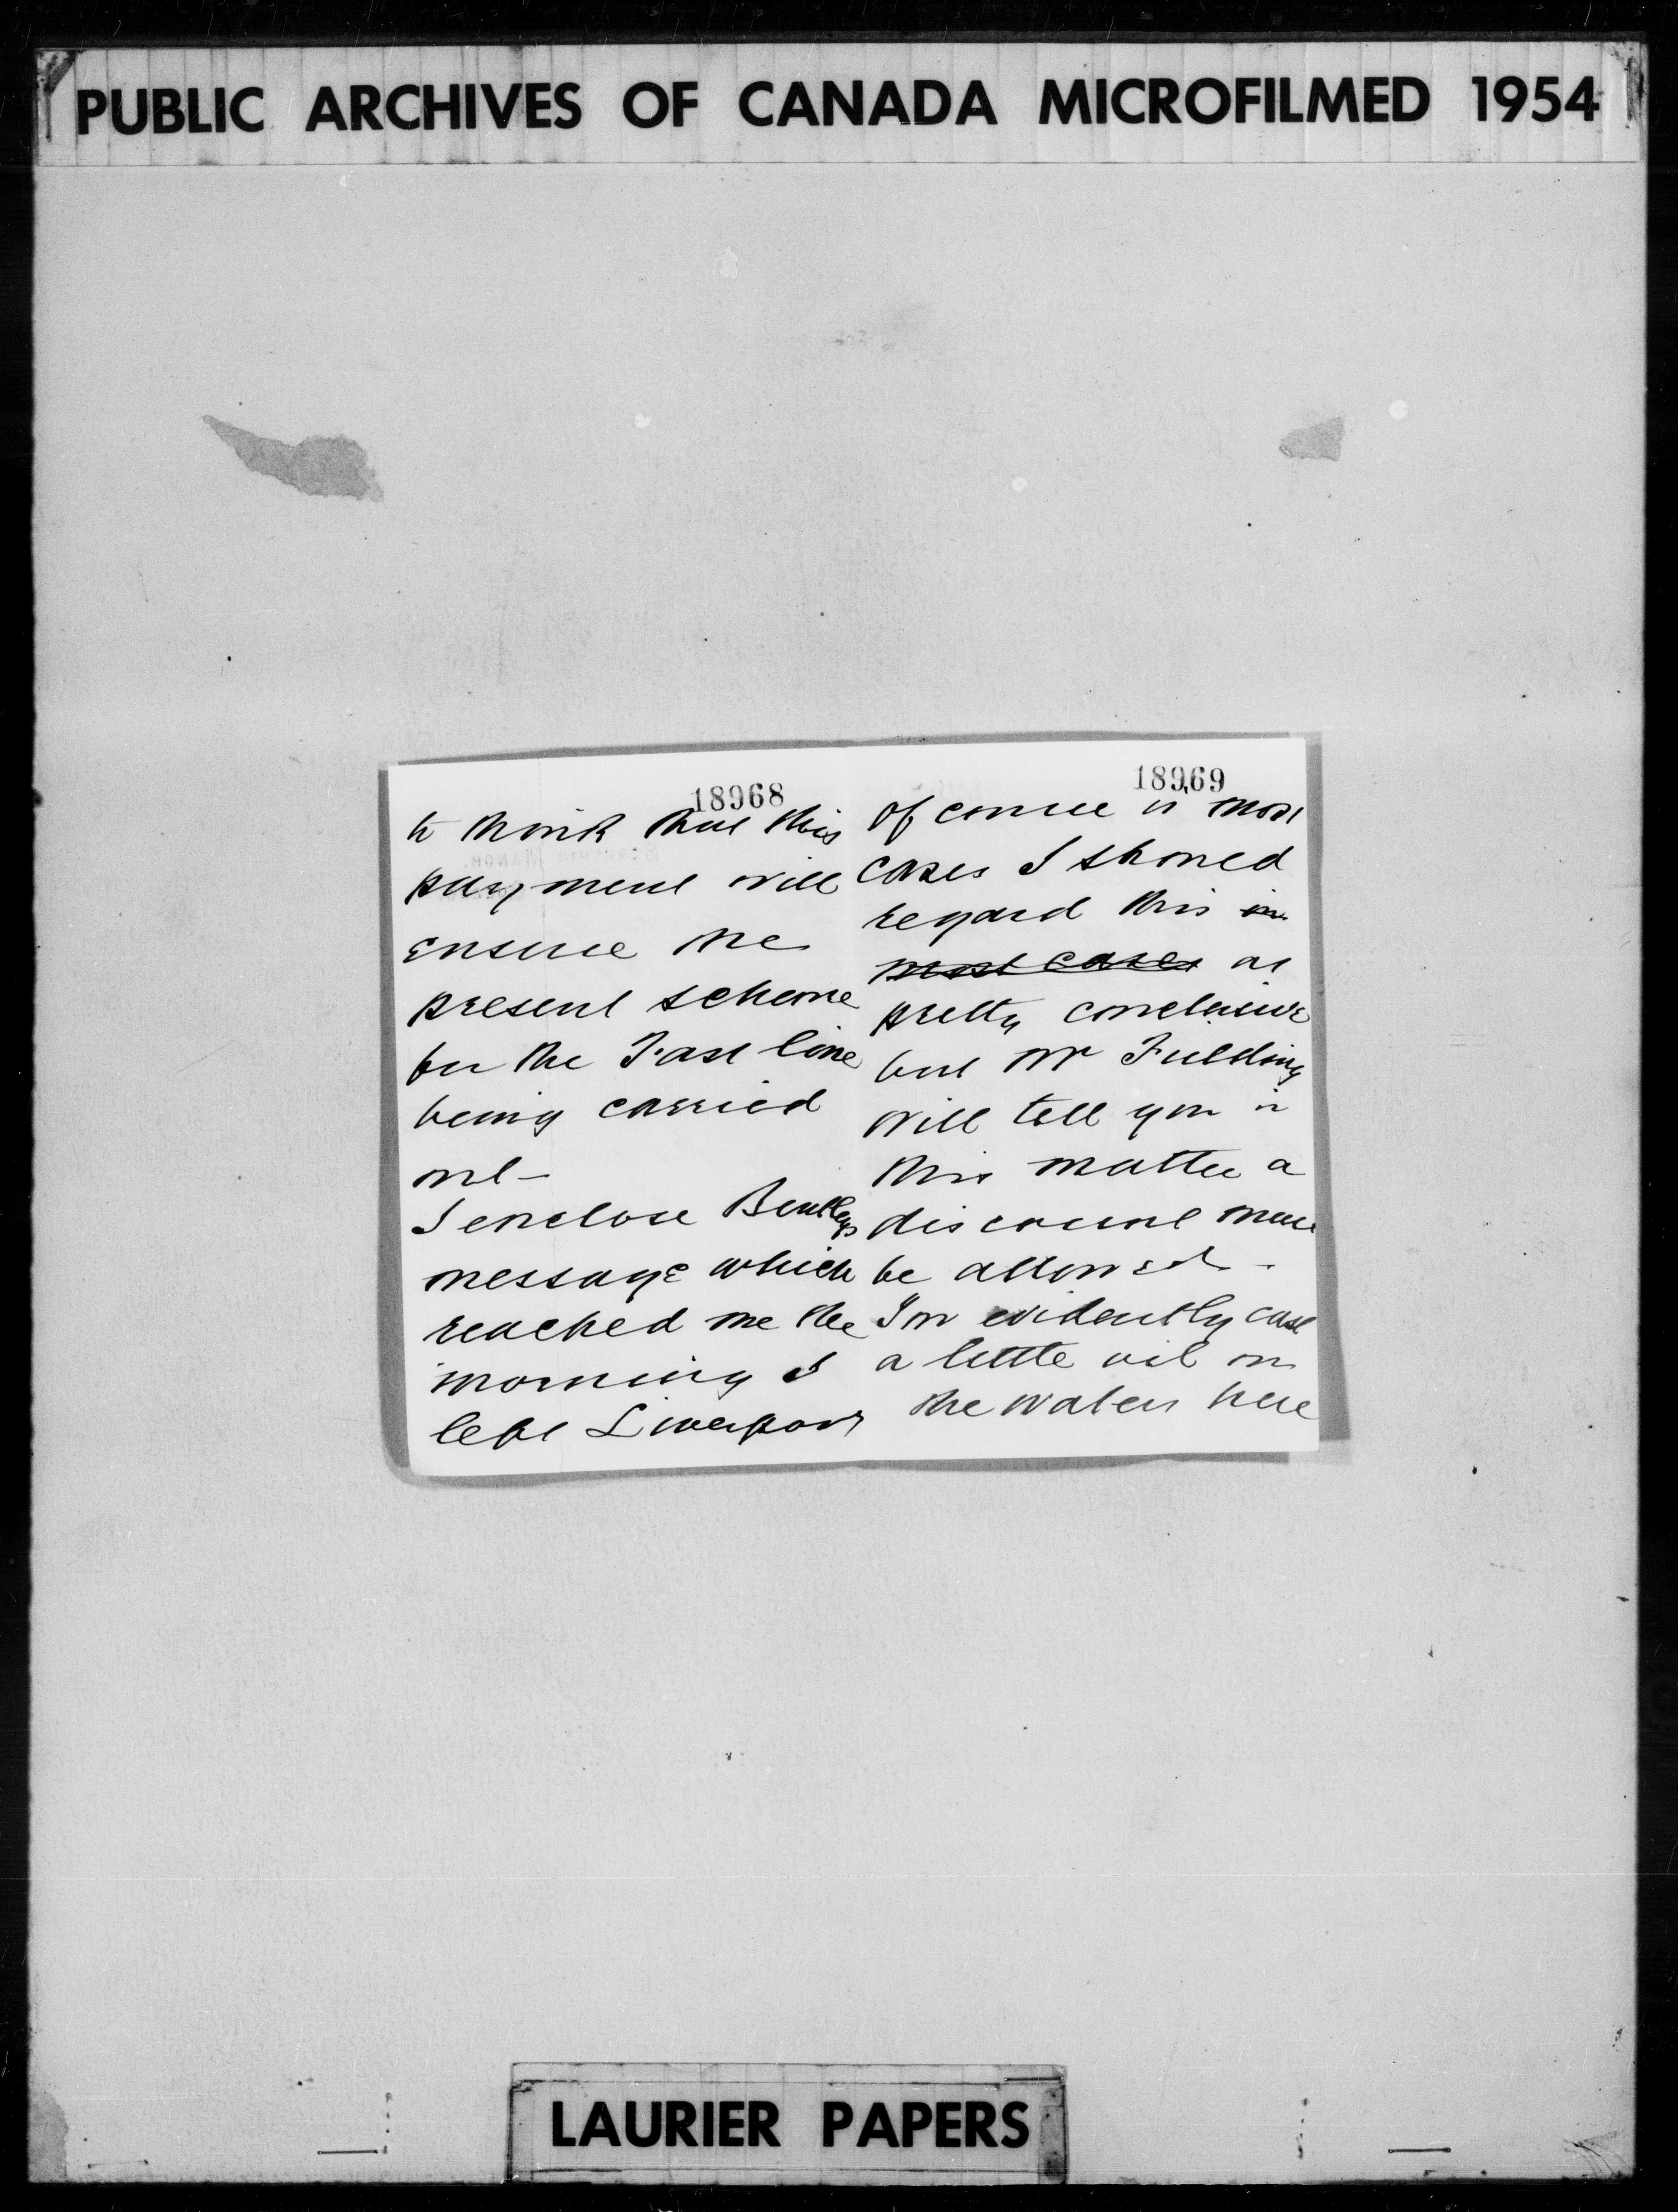 PUBLIC ARCHIVES OF CANADA MICROFILMED 1954
18968
to think that this
payment will
ensure the
present scheme
for the Fast line
being carried
out—
I enclose Bentleys
message which
reached me the
morning I
left Liverpool
18969
Of course in most
cases I should
regard this in
most cases as
pretty conclusive
but Mr Fielding
will tell you in
this matter a
discount must
be allowed—
You evidently cast
a little oil on
the waters here
LAURIER PAPERS